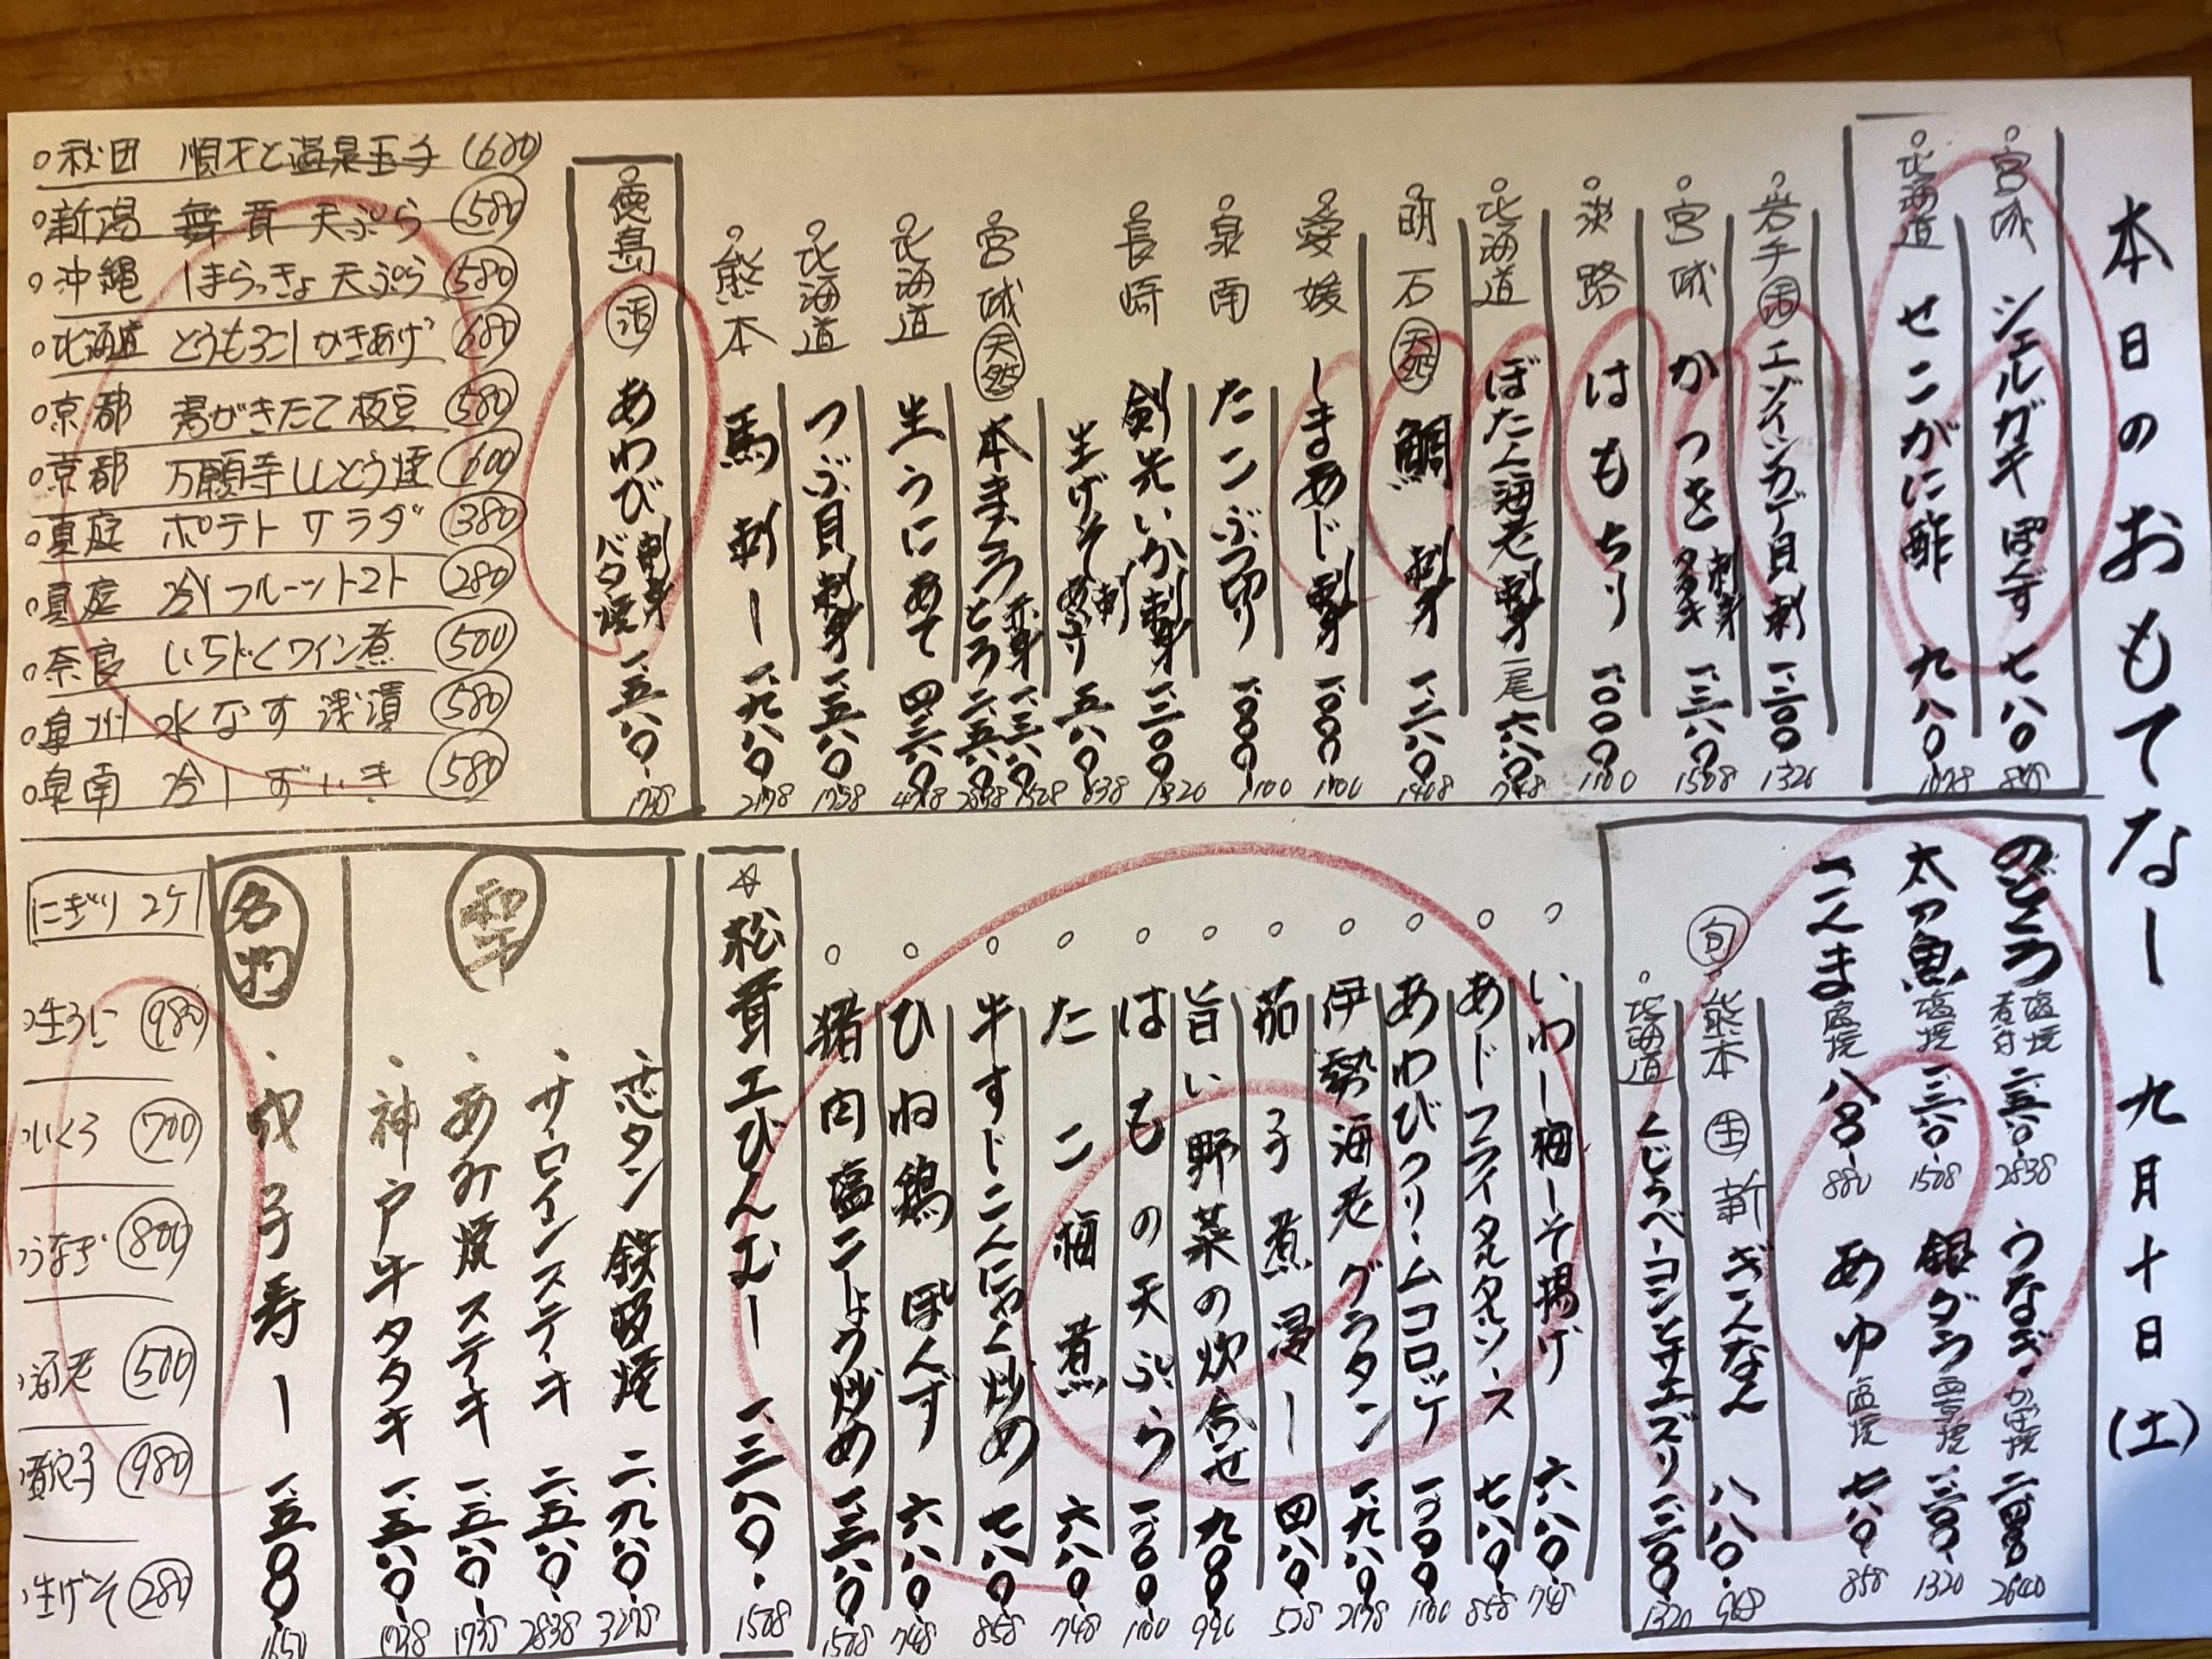 本日のおもてなし 九月十日(土)
宮城 シェルガキ ぽんず 七八〇 858
北海道 せこがに酢 九八〇 1078
岩手 活 エゾイシカゲ貝 刺 一、二〇〇 1320
宮城 かつを 刺身 タタキ 一、三八〇 1508
淡路 はもちり 一、〇〇〇 1100
北海道 ぼたん海老 刺身 一尾 六八〇 748
明石 天然 鯛 刺身 一、二八〇 1408
愛媛 しまあじ 刺身 一、〇〇〇 1100
泉南 たこぶつ切り 一、〇〇〇 1100
長崎 剣先いか 刺身 一、二〇〇 1320
生げそ 刺 五八〇 638
宮城 天然 本まぐろ 赤身 一、三八〇 1508 とろ 二、五八〇 2838
北海道 生うにあて
北海道 つぶ貝 刺身 一、五八〇 1738
熊本 馬刺し 一、九八〇 2178
徳島 活 あわび 刺身 バタ焼 一、五八〇 1738
秋田 順才と温泉玉子 680
新潟 舞茸 天ぷら 580
沖縄 しまらっきょ 天ぷら 580
北海道 とうもろこし かきあげ 680
京都 湯がきたて枝豆 580
京都 万願寺ししとう焼 600
真庭 ポテトサラダ 380
真庭 冷しフルーツトマト 280
奈良 いちじくワイン煮 500
泉州 水なす 浅漬 580
泉南 冷しずいき 580
のどぐろ 塩焼 煮付 二、五八〇 2838
うなぎ かば焼 二、四〇〇 2640
太刀魚 塩焼 1508
銀ダラ 西京焼 一、二〇〇 1320
さんま 塩焼 八〇〇 880
あゆ 塩焼 七八〇 858
旬 熊本 生 新ぎんなん 八八〇 968
北海道 くじらベーコンとサエズリ 一、二〇〇 1320
いわし梅しそ揚げ 六八〇 748
あじフライタルタルソース 七八〇 858
あわびクリームコロッケ 一、〇〇〇 1100
伊勢海老グラタン 一、九八〇 2178
茄子煮浸し 四八〇 528
旨い野菜の炊合せ 九〇〇 990
はもの天ぷら 一、〇〇〇 1100
たこ梅煮 六八〇 748
牛すじこんにゃく炒め 七八〇 858
ひね鶏 ぽんず 六八〇 748
猪肉塩こしょう炒め 一、三八〇 1508
☆松茸土びんむし 一、三八〇 1508
・芯タン 鉄板焼 二、九八〇 3278
・サーロインステーキ 二、五八〇 2838
・あみ焼ステーキ 一、五八〇 1738
・神戸牛タタキ 一、五八〇 1738
名物
寿し 一、五〇〇 1650
にぎり 2ケ
生うに 980
いくら 700
うなぎ 800
海老 500
980
生げそ 280